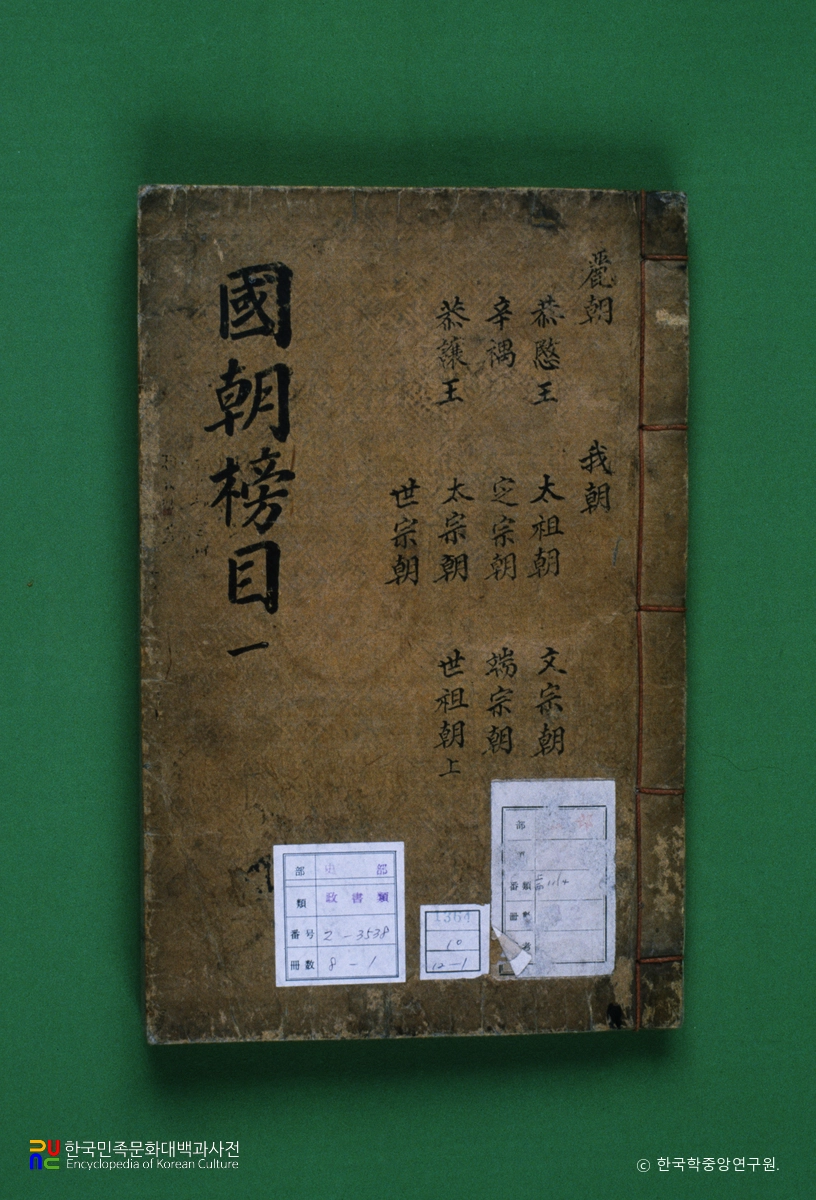 國朝榜目 一
麗朝
恭愍王
辛禑
恭讓王
我朝
太祖朝
定宗朝
太宗朝
世宗朝
文宗朝
端宗朝
世祖朝 上
部 史 部
類 政書類
番号 2-3538
冊数 8-1
1364
10
12-1
部
番類
冊
한국민족문화대백과사전
Encyclopedia of Korean Culture
© 한국학중앙연구원.